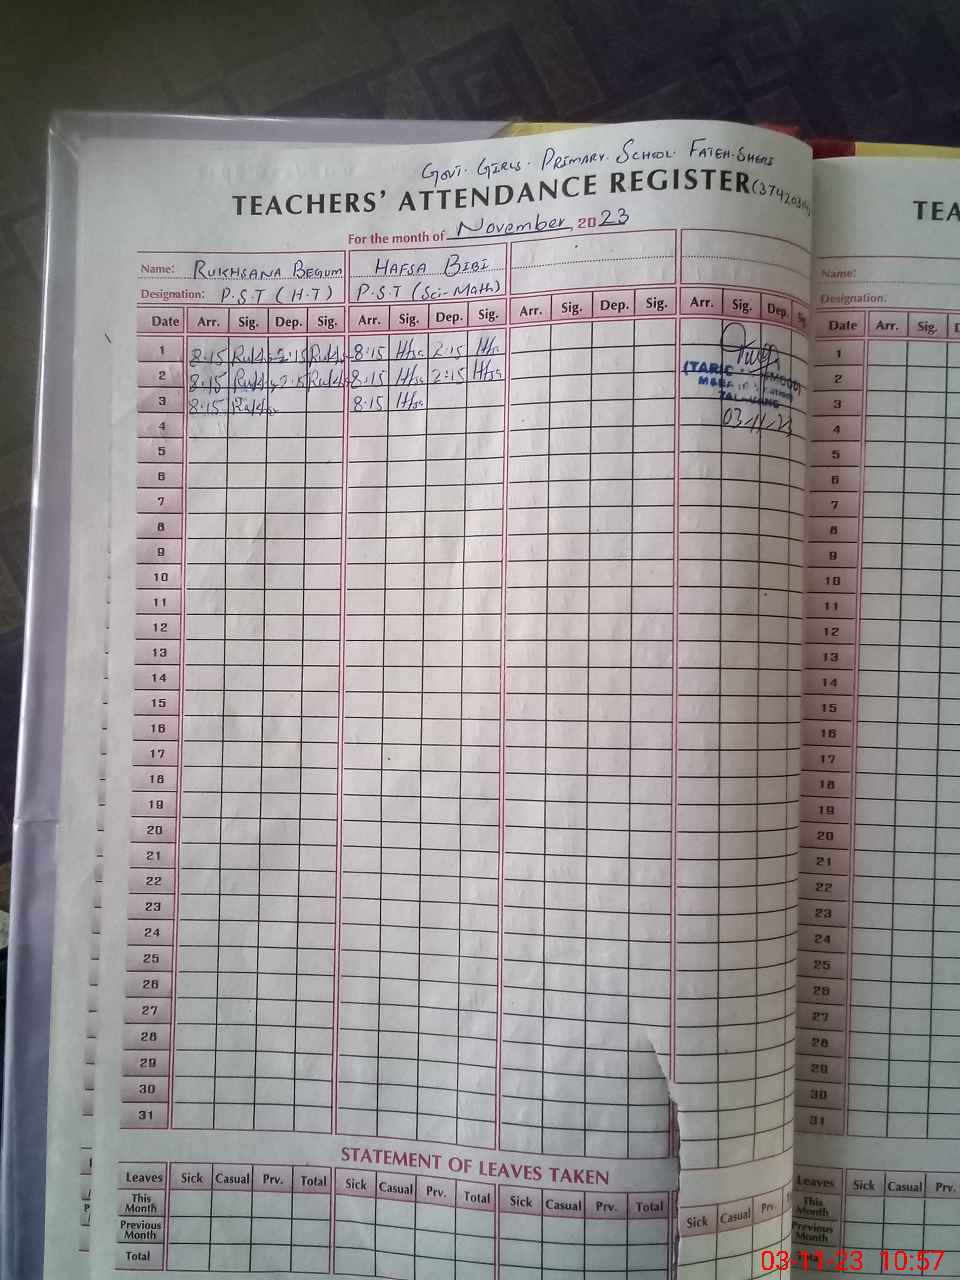 GOVT. GIRLS. PRIMARY. SCHOOL. FATEH-SHERI
TEACHERS' ATTENDANCE REGISTER
TEA
For the month of November, 2023
Name: RUKHSANA BEGUM HAFSA BIBI
Name:
Designation: P.S.T (H.T) P.S.T (Sci-Math)
Designation.
Date Arr. Sig. Dep. Sig. Arr. Sig. Dep. Sig. Arr. Sig. Dep. Sig. Arr. Sig. Dep.
Date Arr. Sig.
1 8:15 2:15 8:15 2:15
2 8:15 2:15 8:15 2:15
3 8:15 8:15
4
03-11-23
5
6
7
8
9
10
11
12
13
14
15
16
17
18
19
20
21
22
23
24
25
26
27
28
29
30
31
1
2
3
4
5
6
7
8
9
10
11
12
13
14
15
16
17
18
19
20
21
22
23
24
25
26
27
28
29
30
31
STATEMENT OF LEAVES TAKEN
Leaves Sick Casual Prv. Total Sick Casual Prv. Total Sick Casual Prv. Total Sick Casual Prv.
This Month
Previous Month
Total
Leaves Sick Casual Prv.
This Month
Previous Month
Total
03-11-23 10:57